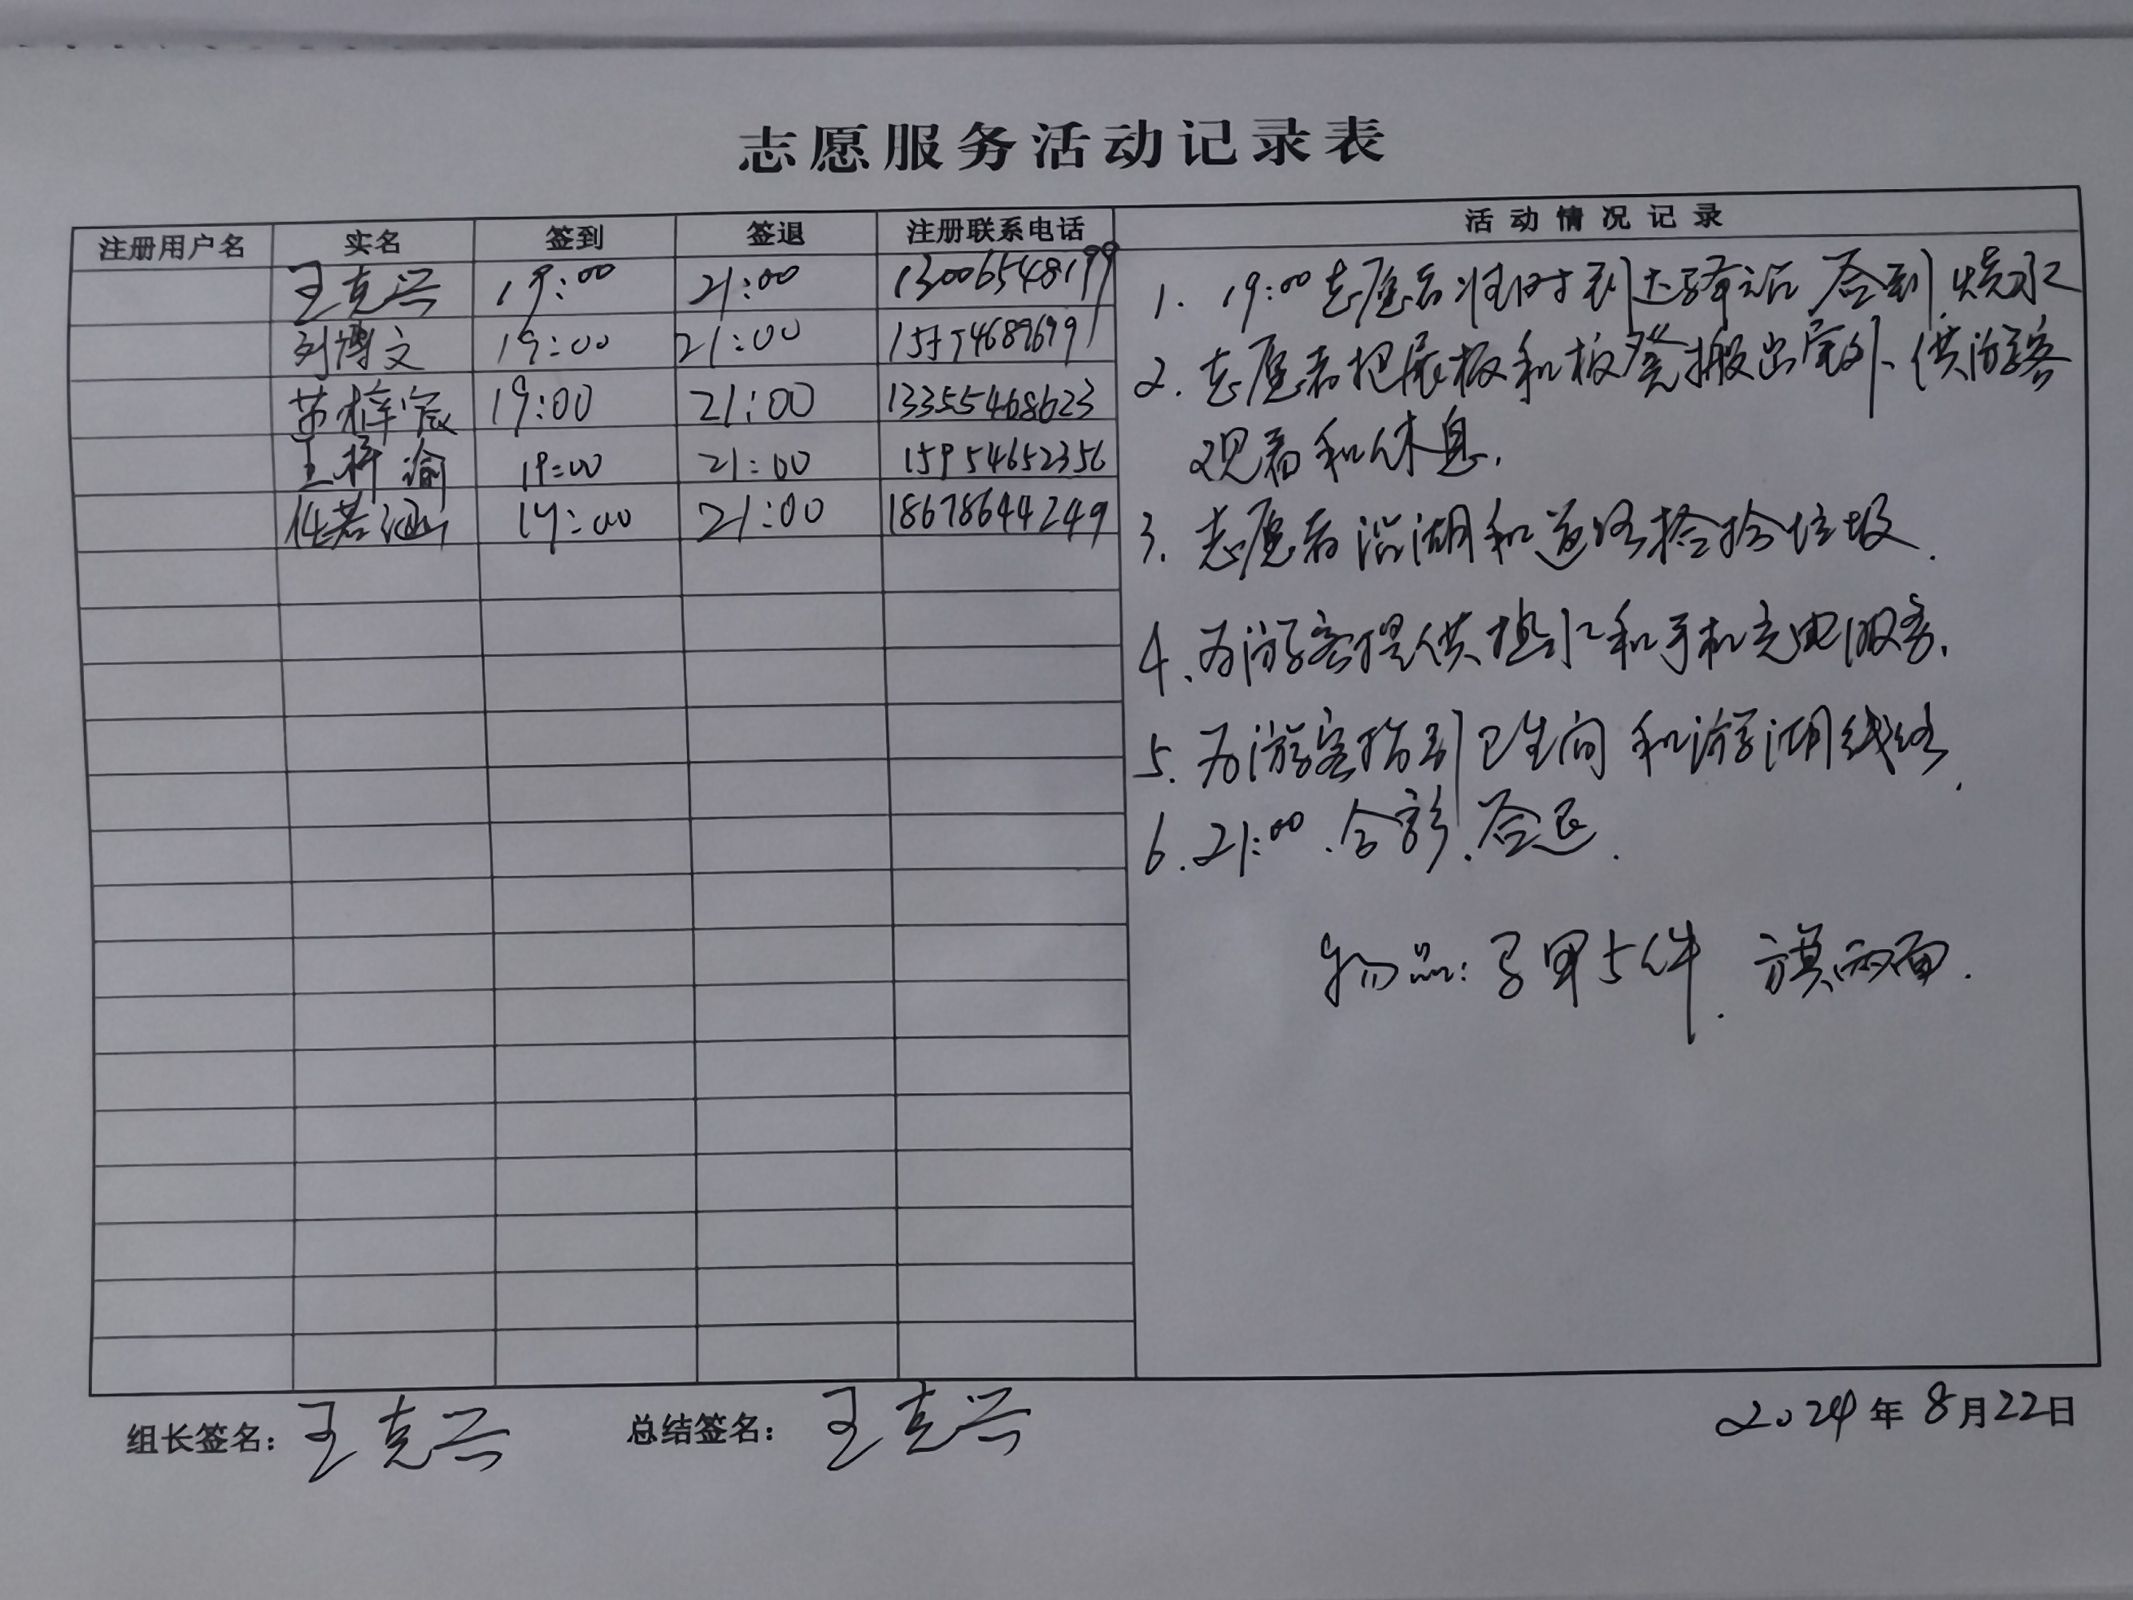 志愿服务活动记录表
注册用户名 实名 签到 签退 注册联系电话 活动情况记录
王克兴 19:00 21:00 13006548199
刘博文 19:00 21:00
苗梓宸 19:00 21:00 13355468623
王梓渝 19:00 21:00 15954652356
任若涵 19:00 21:00 18678644249
1. 19:00志愿者准时到达驿站 签到 烧水
2. 志愿者把展板和板凳搬出室外、供游客
观看和休息.
3. 志愿者沿湖和道路捡拾垃圾.
4. 为游客提供热水和手机充电服务.
5. 为游客指引卫生间和游湖线路.
6. 21:00. 合影. 签退.
物品: 马甲5件. 旗两面.
组长签名: 王克兴 总结签名: 王克兴 2024年8月22日